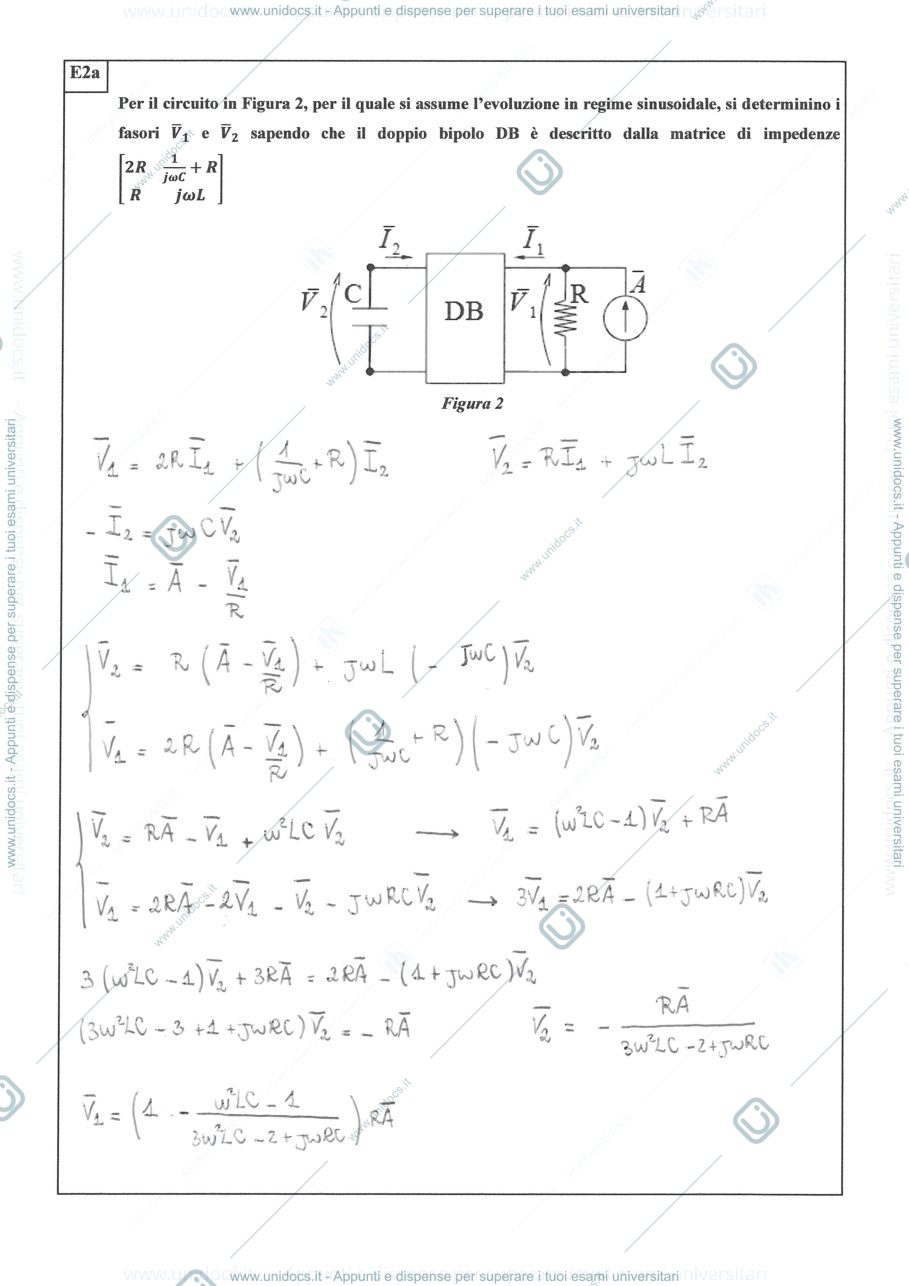 www.unidocs.it - Appunti e dispense per superare i tuoi esami universitari
E2a
Per il circuito in Figura 2, per il quale si assume l'evoluzione in regime sinusoidale, si determinino i
fasori V̅₁ e V̅₂ sapendo che il doppio bipolo DB è descritto dalla matrice di impedenze
[2R 1/(jωC) + R
R jωL]
I̅₂ I̅₁
V̅₂ C DB V̅₁ R A̅
Figura 2
V̅₁ = 2R I̅₁ + (1/(jωC) + R) I̅₂ V̅₂ = R I̅₁ + jωL I̅₂
- I̅₂ = jωC V̅₂
I̅₁ = A̅ - V̅₁/R
V̅₂ = R (A̅ - V̅₁/R) + jωL (- jωC) V̅₂
V̅₁ = 2R (A̅ - V̅₁/R) + (1/(jωC) + R) (- jωC) V̅₂
V̅₂ = RA̅ - V̅₁ + ω²LC V̅₂ → V̅₁ = (ω²LC - 1) V̅₂ + RA̅
V̅₁ = 2RA̅ - 2V̅₁ - V̅₂ - jωRC V̅₂ → 3V̅₁ = 2RA̅ - (1 + jωRC) V̅₂
3 (ω²LC - 1) V̅₂ + 3RA̅ = 2RA̅ - (1 + jωRC) V̅₂
(3ω²LC - 3 + 1 + jωRC) V̅₂ = - RA̅ V̅₂ = - RA̅/(3ω²LC - 2 + jωRC)
V̅₁ = (1 - (ω²LC - 1)/(3ω²LC - 2 + jωRC)) RA̅
www.unidocs.it - Appunti e dispense per superare i tuoi esami universitari
www.unidocs.it - Appunti e dispense per superare i tuoi esami universitari
www.unidocs.it - Appunti e dispense per superare i tuoi esami universitari